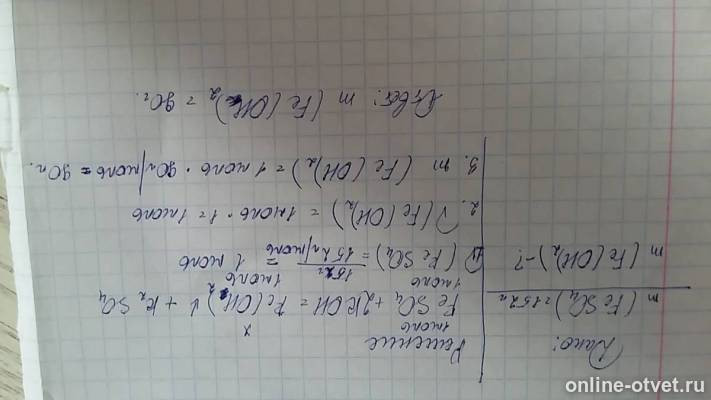 Дано:
m (FeSO4) = 152г
m (Fe(OH)2) - ?
Решение
1моль x
FeSO4 + 2KOH = Fe(OH)2 ↓ + K2SO4
1моль 1моль
1. ν(FeSO4) = 152г / 152г/моль = 1 моль
2. ν(Fe(OH)2) = 1моль · 1 = 1моль
3. m (Fe(OH)2) = 1моль · 90г/моль = 90г.
Ответ: m (Fe(OH)2 = 90г.
online-otvet.ru